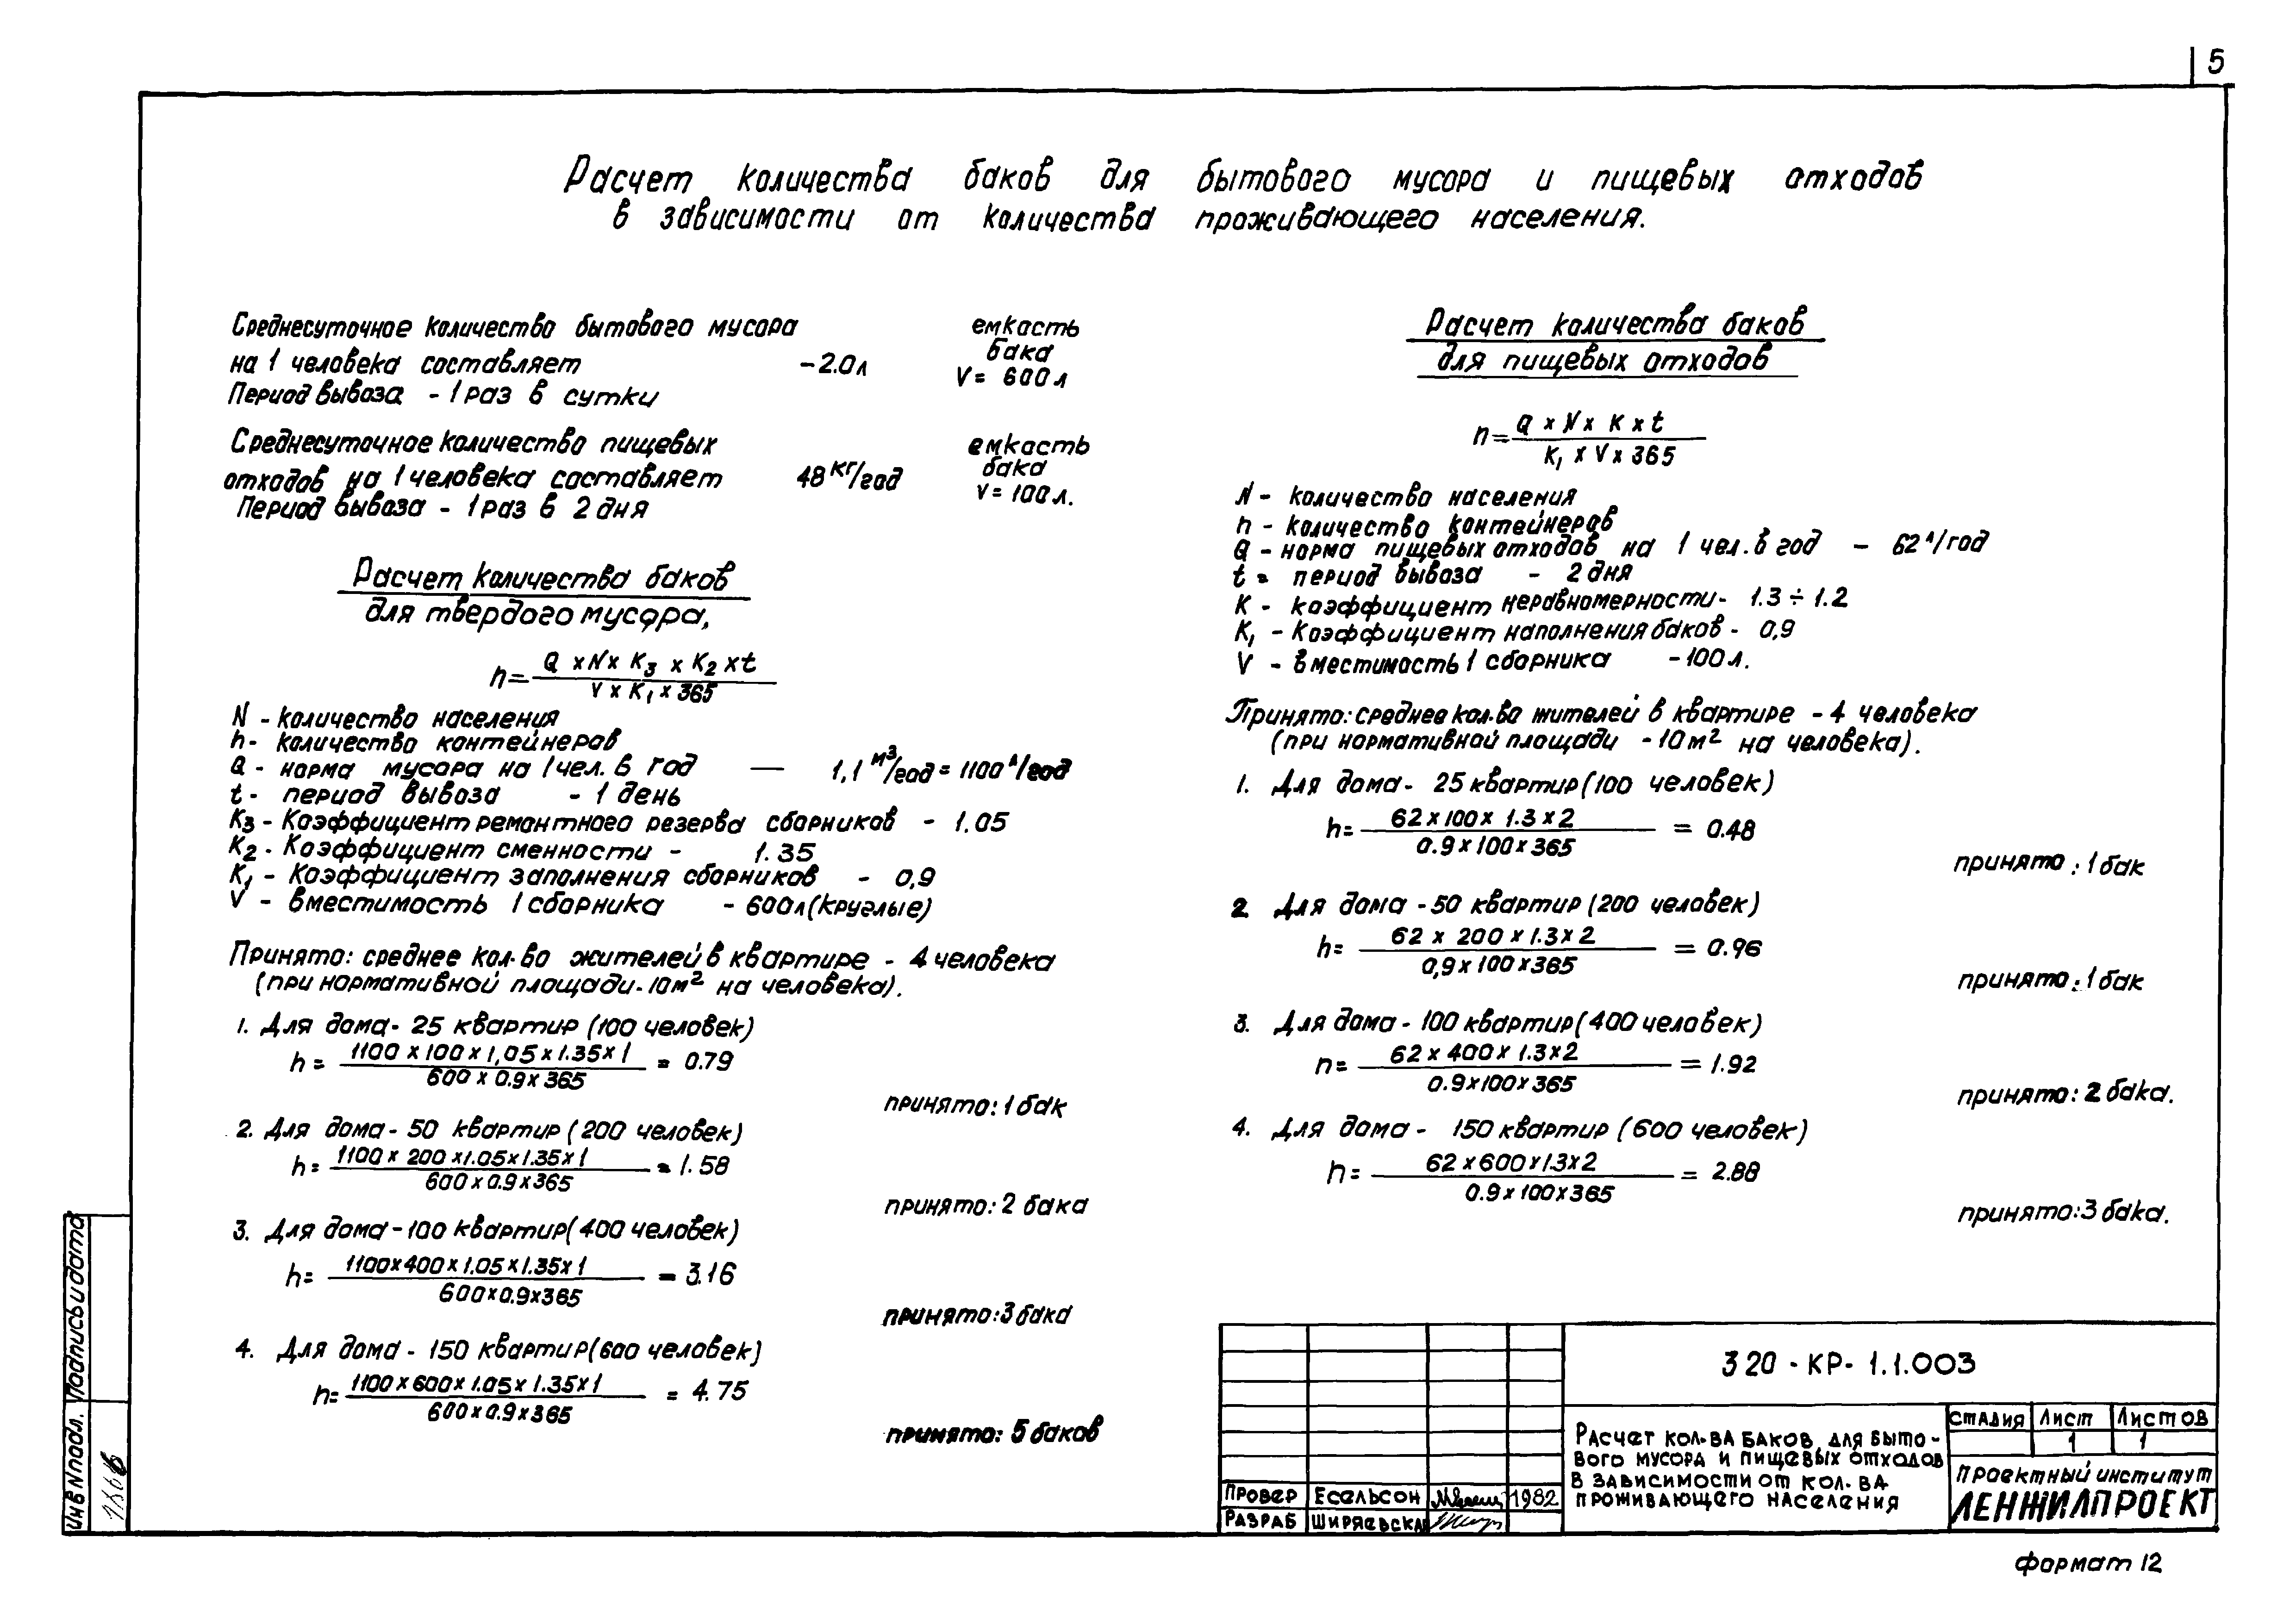 5
Расчет количества баков для бытового мусора и пищевых отходов
в зависимости от количества проживающего населения.
Среднесуточное количество бытового мусора
на 1 человека составляет -2.0л
Период вывоза - 1 раз в сутки
емкость
бака
V= 600л
Среднесуточное количество пищевых
отходов на 1 человека составляет 48 кг/год
Период вывоза - 1 раз в 2 дня
емкасть
бака
V=100л.
Расчет количества баков
для твердого мусора,
n= Q xNx K3 x K2 xt
V x K1 x 365
N - количество населения
n- количество контейнеров
Q - норма мусора на 1 чел. в год — 1,1 м³/год = 1100 л/год
t - период вывоза - 1 день
K3 - Коэффициент ремонтного резерва сборников - 1.05
K2 - Коэффициент сменности - 1.35
K1 - Коэффициент заполнения сборников - 0,9
V - вместимость 1 сборника - 600л(круглые)
Принято: среднее кол-во жителей в квартире - 4 человека
(при нормативной площади-10м² на человека).
1. Для дома- 25 квартир (100 человек)
n = 1100 x 100 x 1,05 x 1.35x 1 = 0.79
600 x 0.9x 365
принято: 1 бак
2. Для дома- 50 квартир (200 человек)
n= 1100x 200 x1.05x1.35x1 = 1.58
600x0.9x365
принято: 2 бака
3. Для дома-100 квартир(400 человек)
n= 1100x400x1.05x1.35x1 = 3.16
600x0.9x365
принято:3 бака
4. Для дома - 150 квартир(600 человек)
n= 1100x600x1.05x1.35x1 = 4.75
600x0.9x365
принято: 5 баков
Расчет количества баков
для пищевых отходов
n= Q x N x K x t
K1 x V x 365
N - количество населения
n - количество контейнеров
Q - норма пищевых отходов на 1 чел. в год - 62 л/год
t = период вывоза - 2 дня
K - коэффициент неравномерности- 1.3÷1.2
K1 - Коэффициент наполнения баков - 0,9
V - вместимость 1 сборника -100л.
Принято: среднее кол-во жителей в квартире - 4 человека
(при нормативной площади -10м² на человека).
1. Для дома- 25 квартир(100 человек)
n= 62x100x 1.3x2 = 0.48
0.9x100x365
принято : 1 бак
2. Для дома -50 квартир (200 человек)
n= 62 x 200 x1.3x2 = 0.96
0,9x100x365
принято : 1 бак
3. Для дома - 100 квартир(400 человек)
n= 62 x 400x 1.3x2 = 1.92
0.9x100x365
принято: 2 бака.
4. Для дома - 150 квартир (600 человек)
n= 62x600x1.3x2 = 2.88
0.9x100x365
принято:3 бака.
Инв N подл. Подпись и дата
320 - КР- 1.1.003
Расчет кол-ва баков для быто-
вого мусора и пищевых отходов
в зависимости от кол-ва
проживающего населения
Стадия Лист Листов
1 1
Проектный институт
ЛЕНЖИЛПРОЕКТ
Провер Есельсон 1982
Разраб Ширяевская
Формат 12